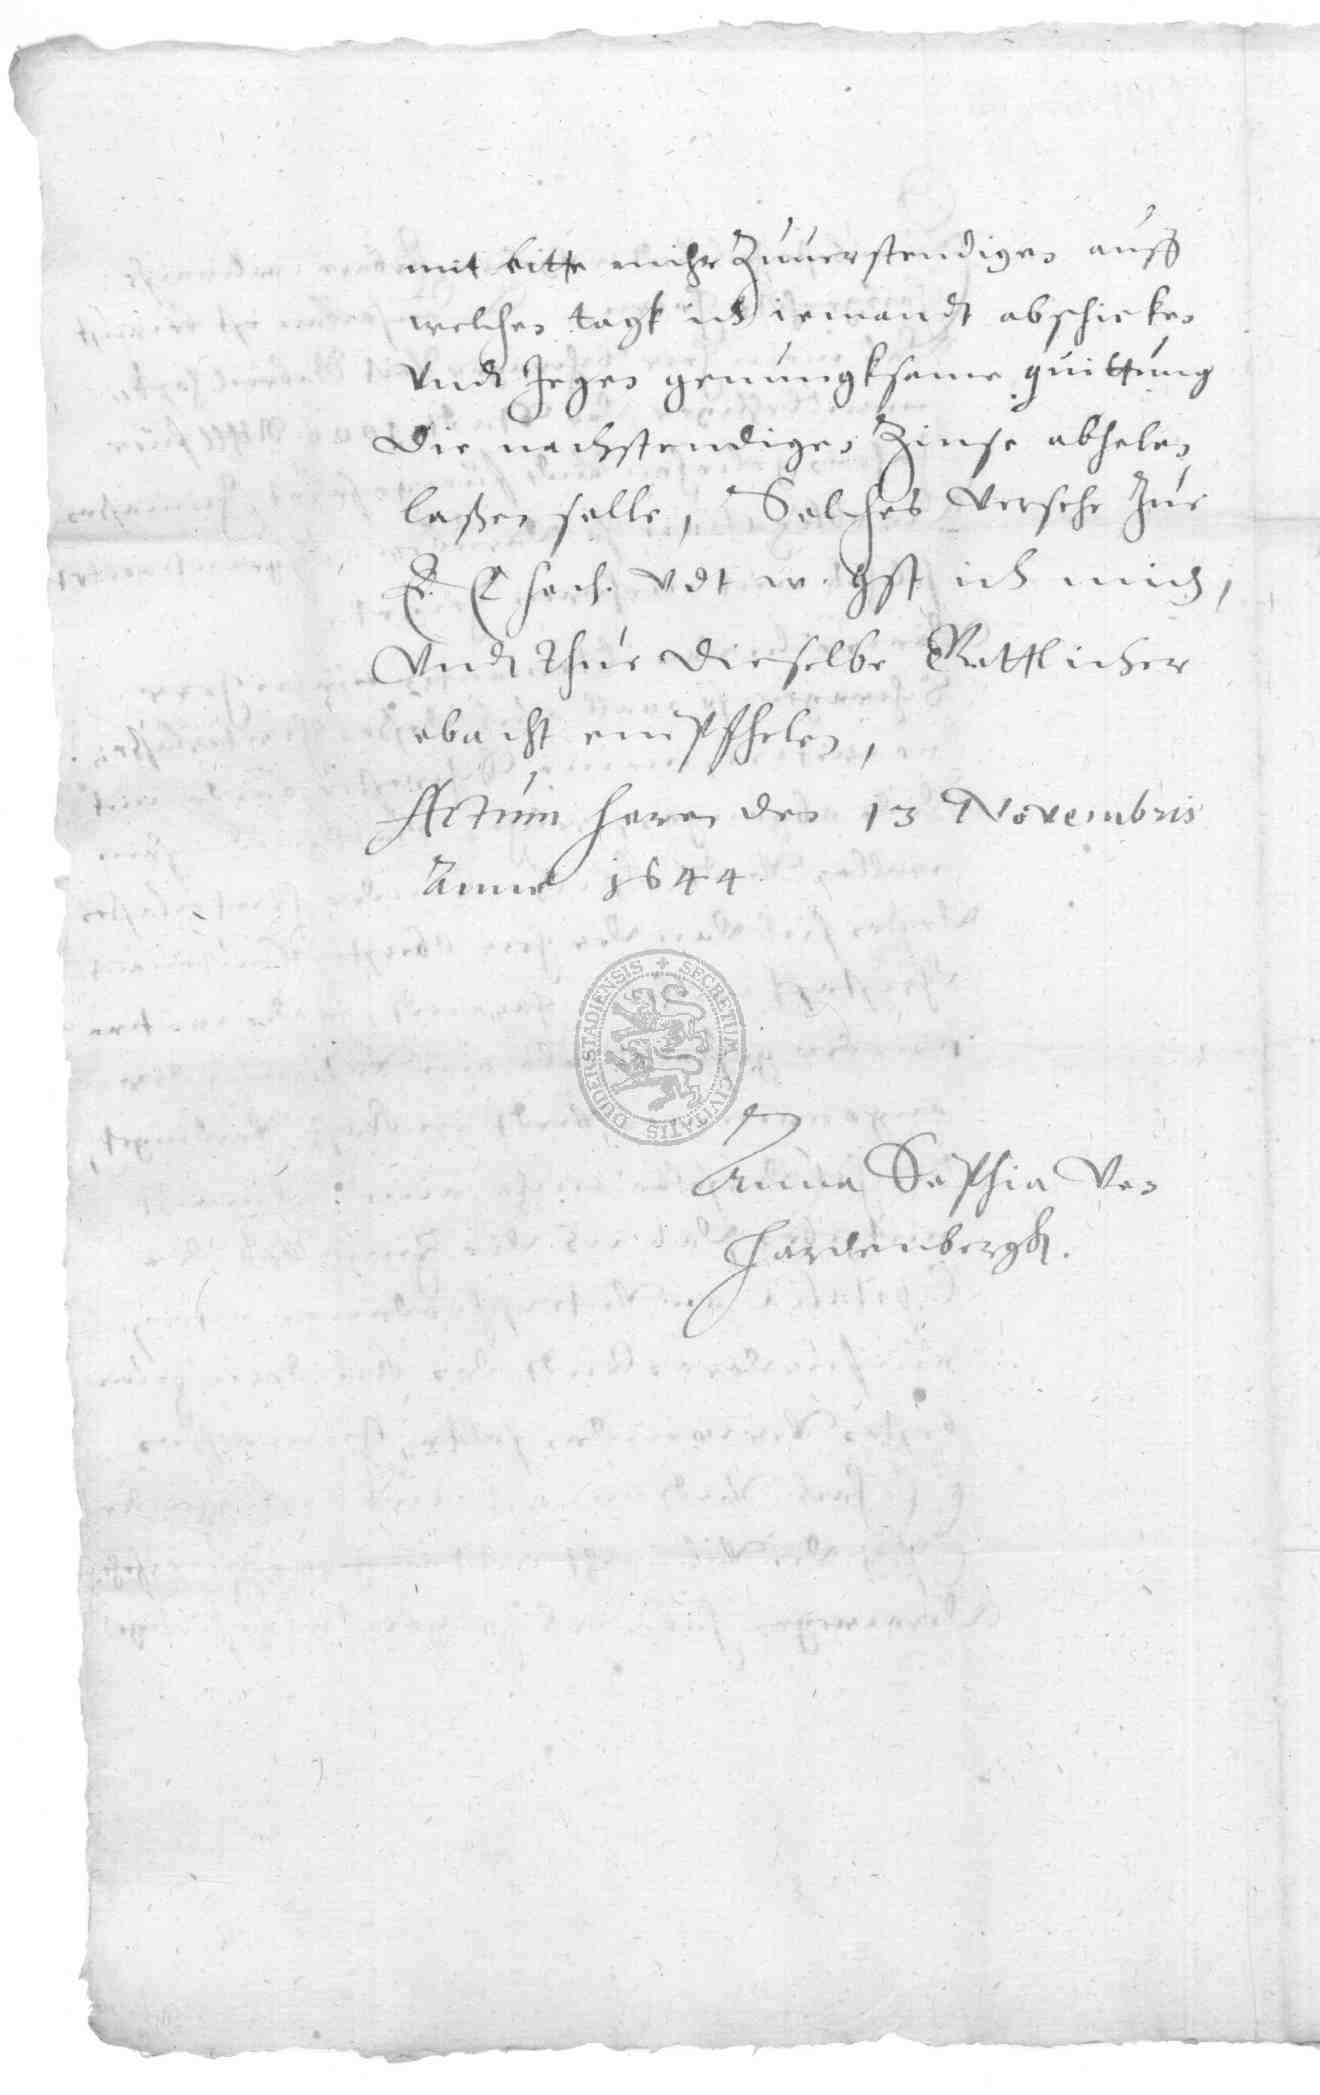 mit bitte mihr Zuuerstendigen auff
welchen tagk ich iemandt abschicken
Vndt Jegen genungksame quittung
die nachstendigen Zinse abholen
laßen solle, Solches versehe Zue
E. E hoch. vdt w. gst ich mich,
Vndt Thue dieselbe Gottlicher
obacht empfhelen,
Actum den 13 Novembris
Anno 1644.
SECRETUM CIVITATIS DUDERSTADIENSIS
Anna Sophia Von
Hardenbergk.